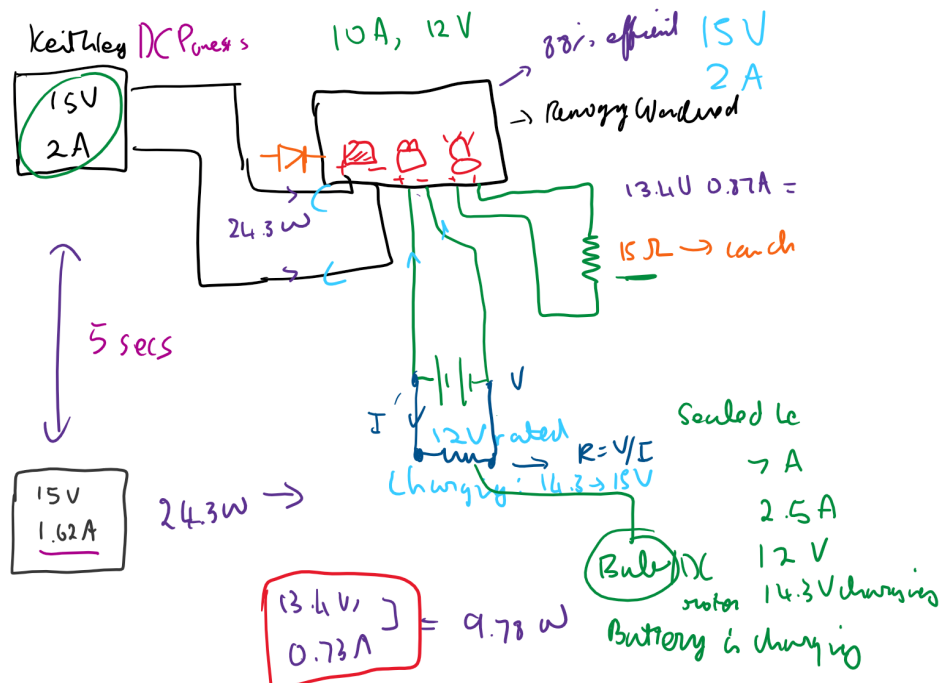 Keithley DC Powers
10A, 12V
88% efficient
15V
2A
15V
2A
→ Renogy Wanderer
24.3W
13.4V 0.87A =
15Ω →
5 secs
V
I
12V rated
→ R=V/I
Charging: 14.3→15V
Sealed
7 A
2.5A
12 V
14.3V charging
Bulb DC
motor
Battery is charging
15V
1.62A
24.3W →
13.4V,
0.73A
= 9.78 W